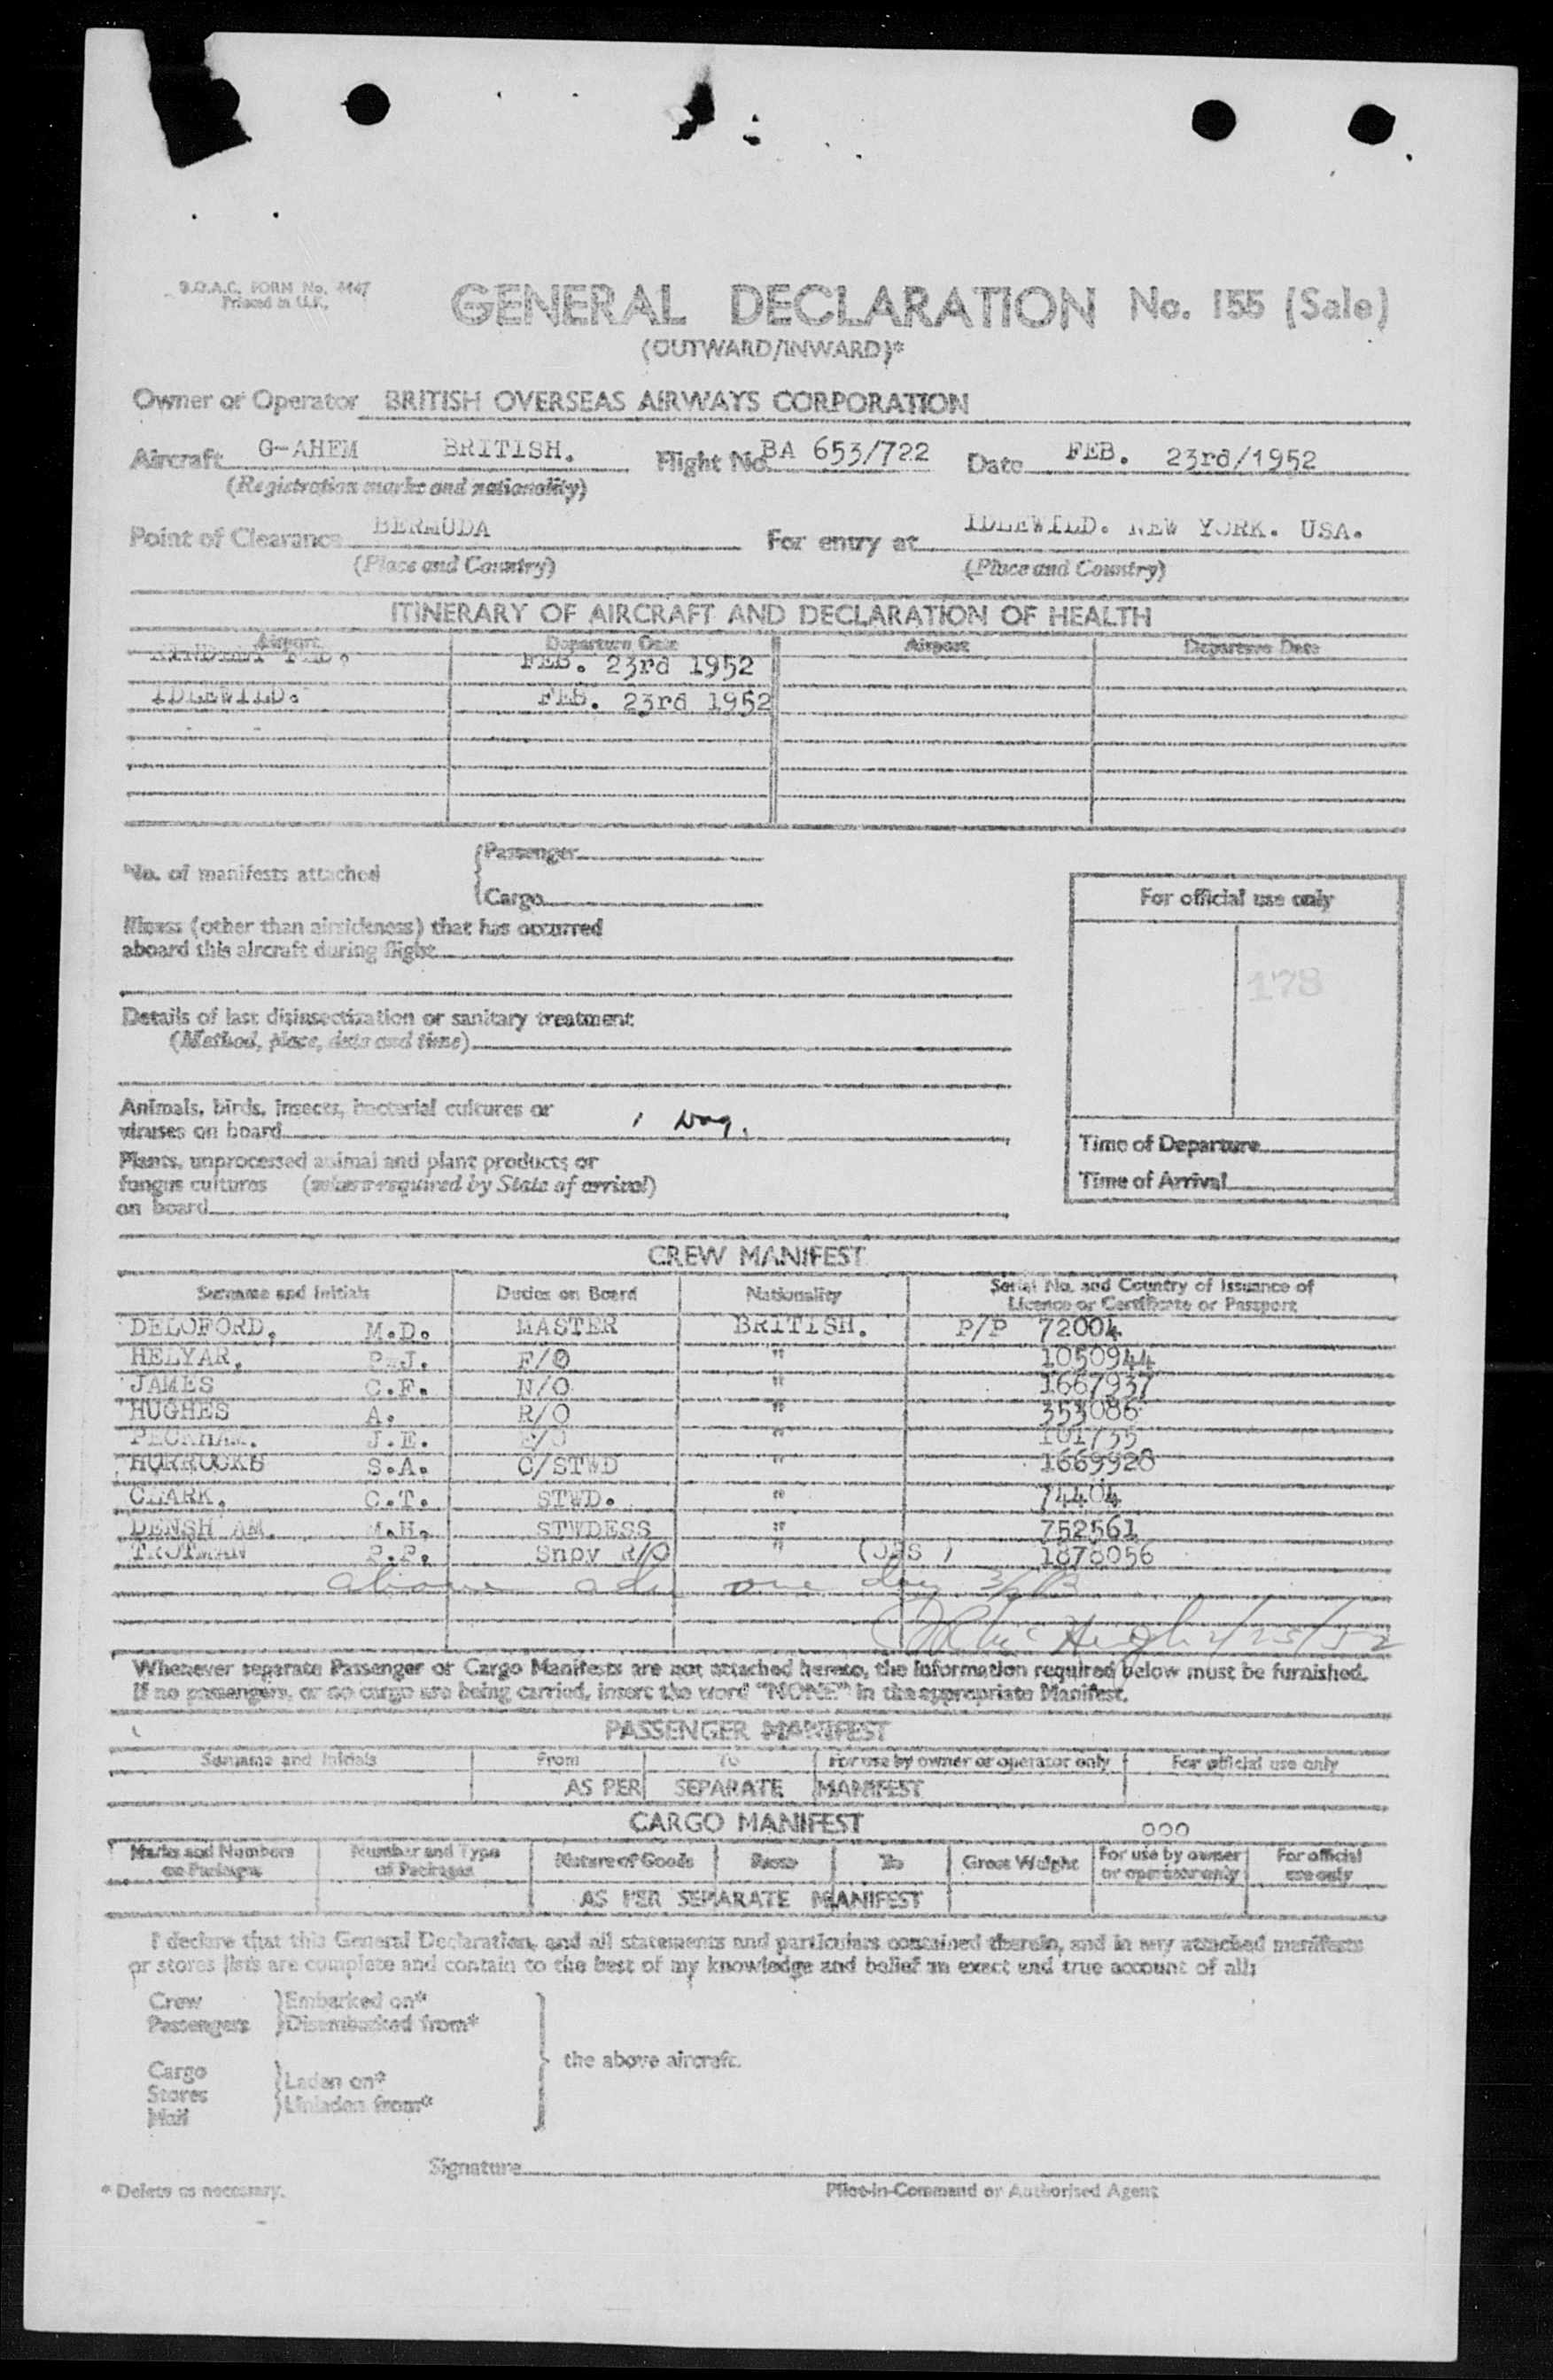 B.O.A.C. FORM No. 4447
Printed in U.K.
GENERAL DECLARATION No. 155 (Sale)
(OUTWARD/INWARD)*
Owner or Operator BRITISH OVERSEAS AIRWAYS CORPORATION
Aircraft G-AHEM BRITISH. Flight No. BA 653/722 Date FEB. 23rd/1952
(Registration marks and nationality)
Point of Clearance BERMUDA For entry at IDLEWILD. NEW YORK. USA.
(Place and Country) (Place and Country)
ITINERARY OF AIRCRAFT AND DECLARATION OF HEALTH
Airport Departure Date Airport Departure Date
FEB. 23rd 1952
IDLEWILD. FEB. 23rd 1952
No. of manifests attached
Passenger
Cargo
For official use only
Illness (other than airsickness) that has occurred
aboard this aircraft during flight
178
Details of last disinsectization or sanitary treatment
(Method, place, date and time)
Animals, birds, insects, bacterial cultures or
viruses on board 1 Dog.
Time of Departure
Plants, unprocessed animal and plant products or
fungus cultures (where required by State of arrival)
Time of Arrival
on board
CREW MANIFEST
Surname and Initials Duties on Board Nationality Serial No. and Country of Issuance of
Licence or Certificate or Passport
DELOFORD, M.D. MASTER BRITISH. P/P 72004
HELYAR, P.J. F/O " 1050944
JAMES C.F. N/O " 1667937
HUGHES A. R/O " 353086
PECKHAM. J.E. E/O " 101735
HORROCKS S.A. C/STWD " 1669928
CLARK, C.T. STWD. " 74404
DENSH AM. M.H. STWDESS " 752561
TROTMAN P.P. Snpv R/O " 1878056
above one day
2/23/52
Whenever separate Passenger or Cargo Manifests are not attached hereto, the information required below must be furnished.
If no passengers, or no cargo are being carried, insert the word "NONE" in the appropriate Manifest.
PASSENGER MANIFEST
Surname and Initials From To For use by owner or operator only For official use only
AS PER SEPARATE MANIFEST
CARGO MANIFEST
000
Marks and Numbers on Packages Number and Type of Packages Nature of Goods From To Gross Weight For use by owner or operator only For official use only
AS PER SEPARATE MANIFEST
I declare that this General Declaration, and all statements and particulars contained therein, and in any attached manifests
or stores lists are complete and contain to the best of my knowledge and belief an exact and true account of all:
Crew Embarked on*
Passengers Disembarked from*
the above aircraft.
Cargo
Stores Laden on*
Mail Unladen from*
Signature
* Delete as necessary. Pilot-in-Command or Authorised Agent